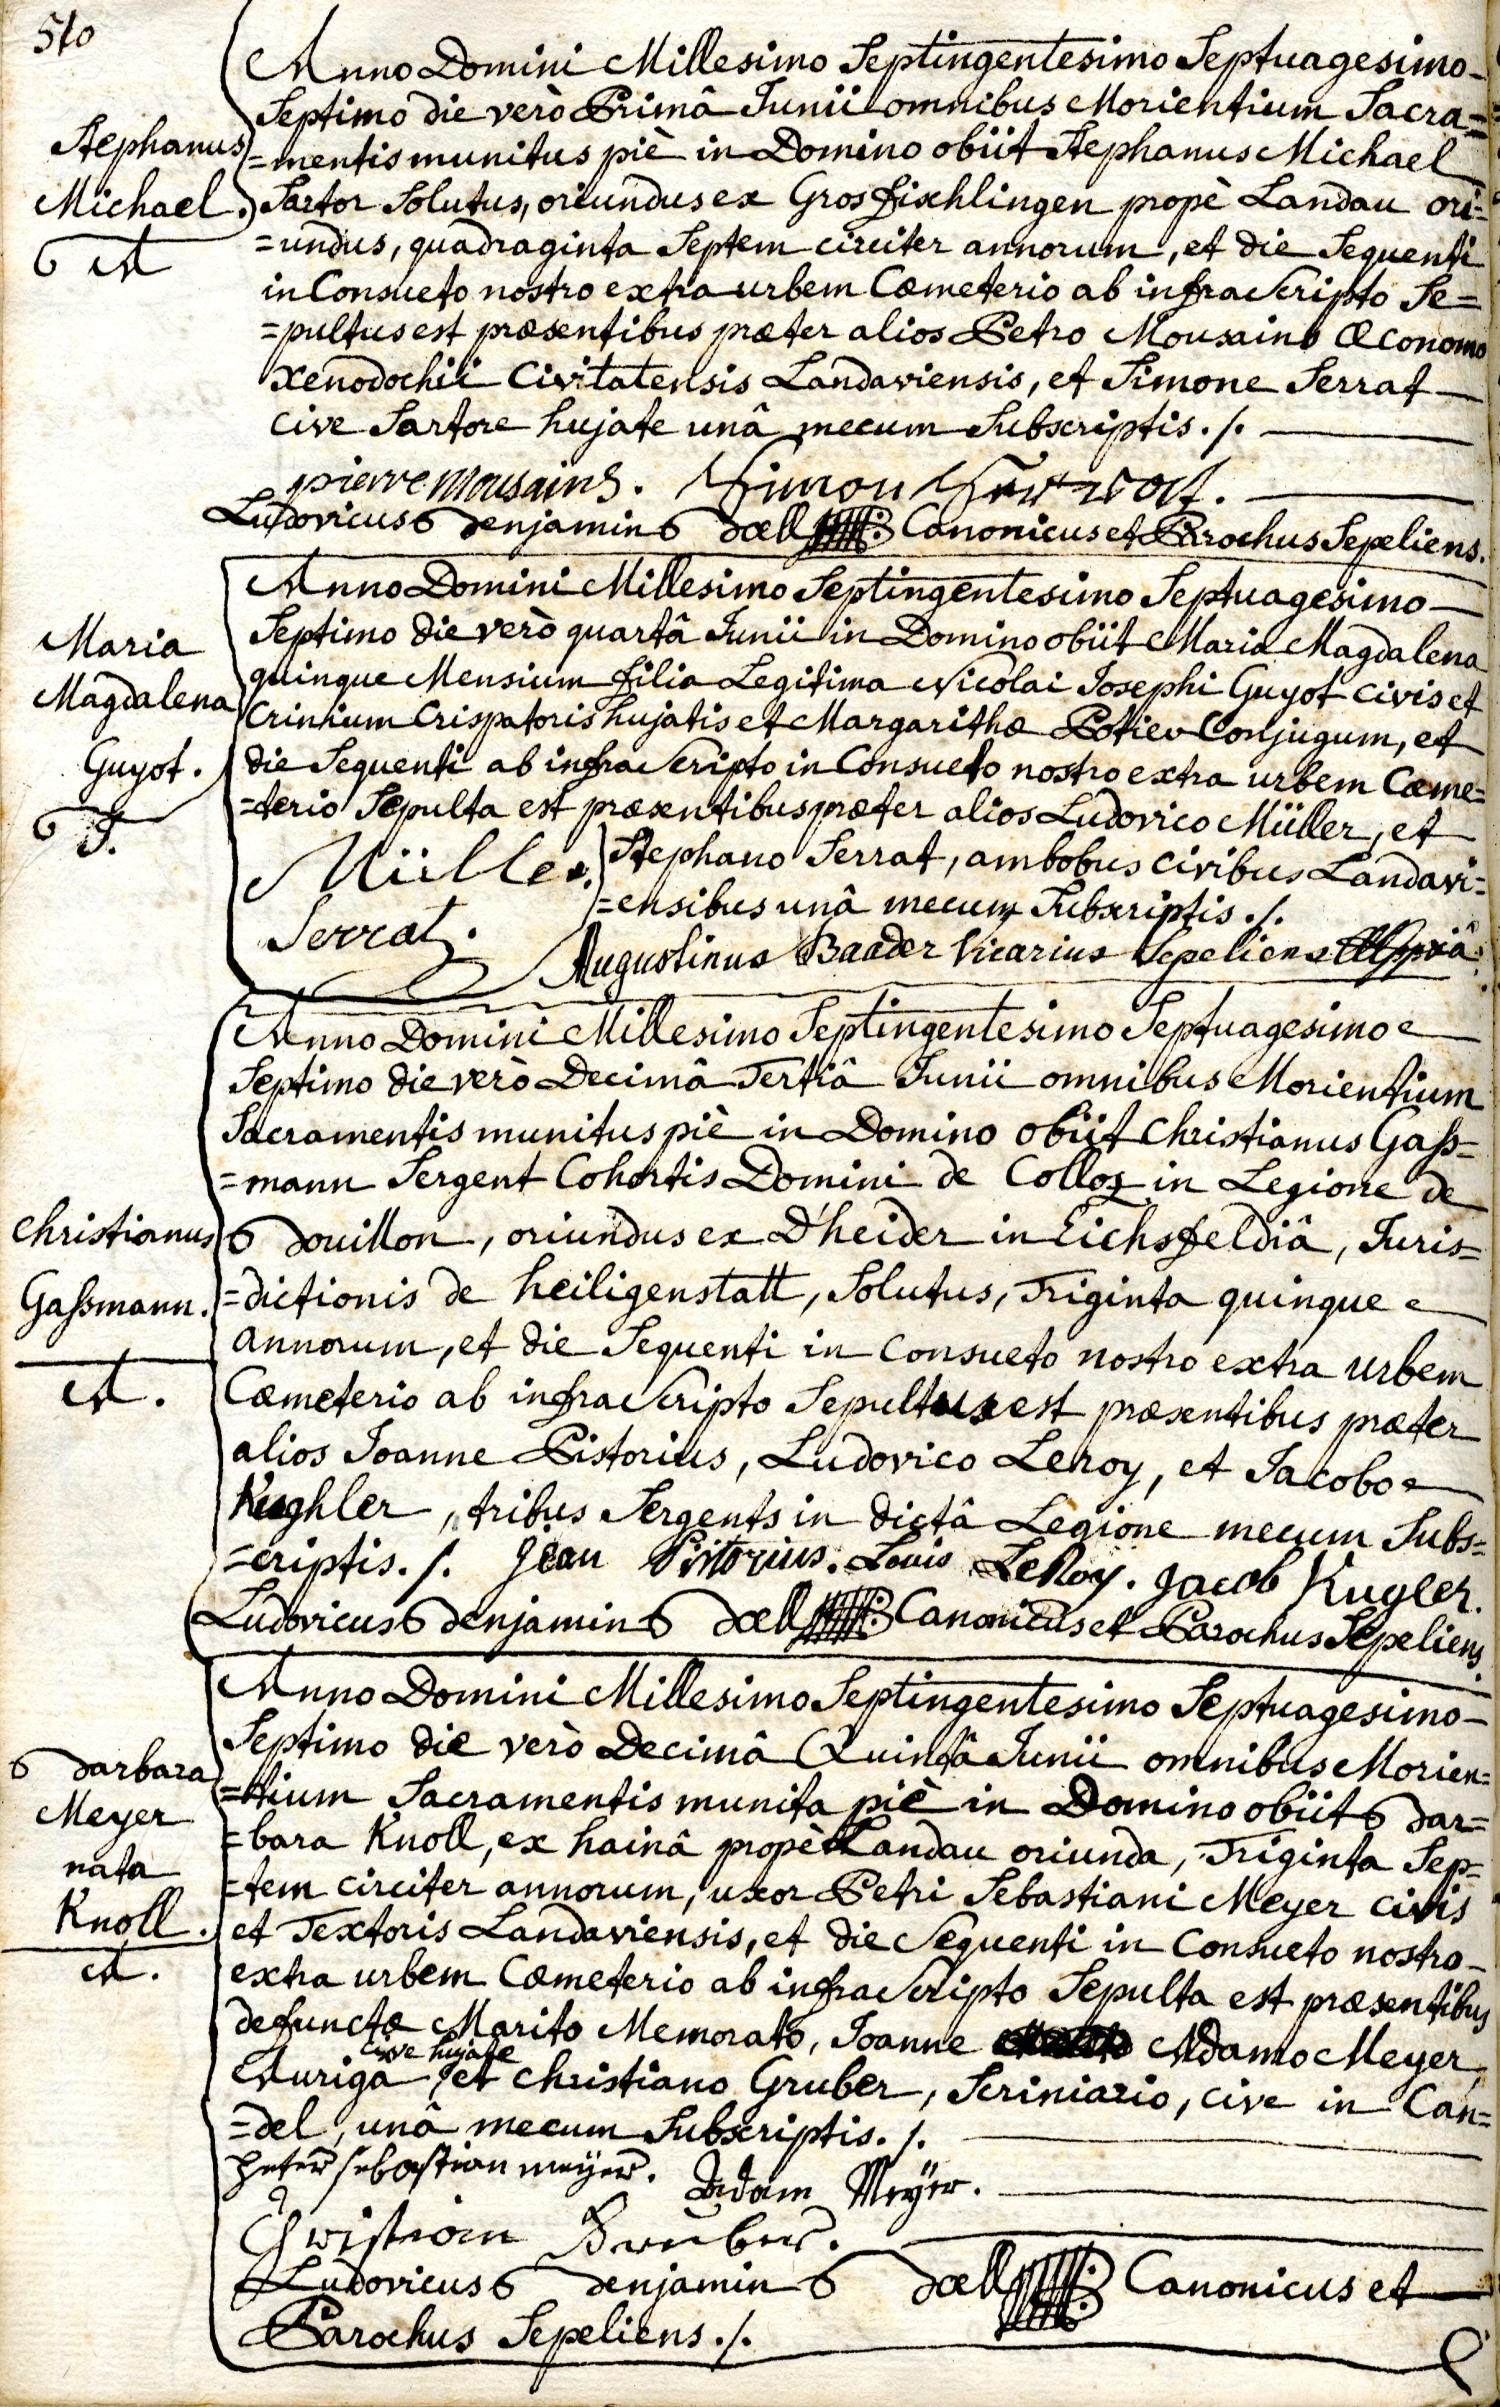 510
Anno Domini Millesimo Septingentesimo Septuagesimo
Septimo die verò Primâ Junii omnibus Morientium Sacra=
Stephanus
=mentis munitus piè in Domino obiit Stephanus Michael
Michael.
Sartor Solutus, oriundus ex Grosfischlingen propè Landau ori=
A
=undus, quadraginta Septem circiter annorum, et die Sequenti
in Consueto nostro extra urbem Cœmeterio ab infra Scripto Se=
=pultus est præsentibus præter alios Petro Mousains Œconomo
Xenodochii Civitatensis Landaviensis, et Simone Serrat
cive Sartore hujate unâ mecum Subscriptis ./.
pierre mousains. Simon Serrat.
Ludovicus Benjamin Bœll Canonicus et Parochus Sepeliens.
Anno Domini Millesimo Septingentesimo Septuagesimo
Septimo die verò quartâ Junii in Domino obiit Maria Magdalena
Maria
quinque Mensium filia Legitima Nicolai Josephi Guyot civis et
Magdalena
Crinium Crispatoris hujatis et Margarithæ Potier Conjugum, et
Guyot.
die Sequenti ab infra Scripto in Consueto nostro extra urbem Cœme=
=terio Sepulta est præsentibus præter alios Ludovico Müller, et
Stephano Serrat, ambobus civibus Landavi=
Müller.
=ensibus unâ mecum Subscriptis ./.
Serrat.
Augustinus Baader Vicarius Sepeliens
Anno Domini Millesimo Septingentesimo Septuagesimo
Septimo die verò Decimâ Tertiâ Junii omnibus Morientium
Sacramentis munitus piè in Domino obiit Christianus Gaß=
=mann Sergent Cohortis Domini de Colloz in Legione de
Christianus
Bouillon, oriundus ex D'heider in Eichsfeldiâ, Juris=
Gaßmann.
=dictionis de heiligenstatt, Solutus, Triginta quinque
annorum, et die Sequenti in Consueto nostro extra urbem
A.
Cœmeterio ab infra Scripto Sepultus est præsentibus præter
alios Joanne Pistorius, Ludovico Leroy, et Jacobo
Kughler, tribus Sergents in dictâ Legione mecum Subs=
=criptis ./. Jean Pistorius. Louis LeRoy. Jacob Kugler.
Ludovicus Benjamin Bœll Canonicus et Parochus Sepeliens.
Anno Domini Millesimo Septingentesimo Septuagesimo
Septimo die verò Decimâ Quintâ Junii omnibus Morien=
Barbara
=tium Sacramentis munita piè in Domino obiit Bar=
Meyer
=bara Knoll, ex hainâ propè Landau oriunda, Triginta Sep=
nata
=tem circiter annorum, uxor Petri Sebastiani Meyer civis
Knoll.
et Textoris Landaviensis, et die Sequenti in Consueto nostro
A.
extra urbem Cœmeterio ab infra Scripto Sepulta est præsentibus
defunctæ Marito Memorato, Joanne Adamo Meyer,
cive hujate
Auriga, et Christiano Gruber, Scriniario, cive in Can=
=del, unâ mecum Subscriptis ./.
Peter sebastian meyer. Adam Meyer.
Christian Gruber.
Ludovicus Benjamin Bœll Canonicus et
Parochus Sepeliens ./.